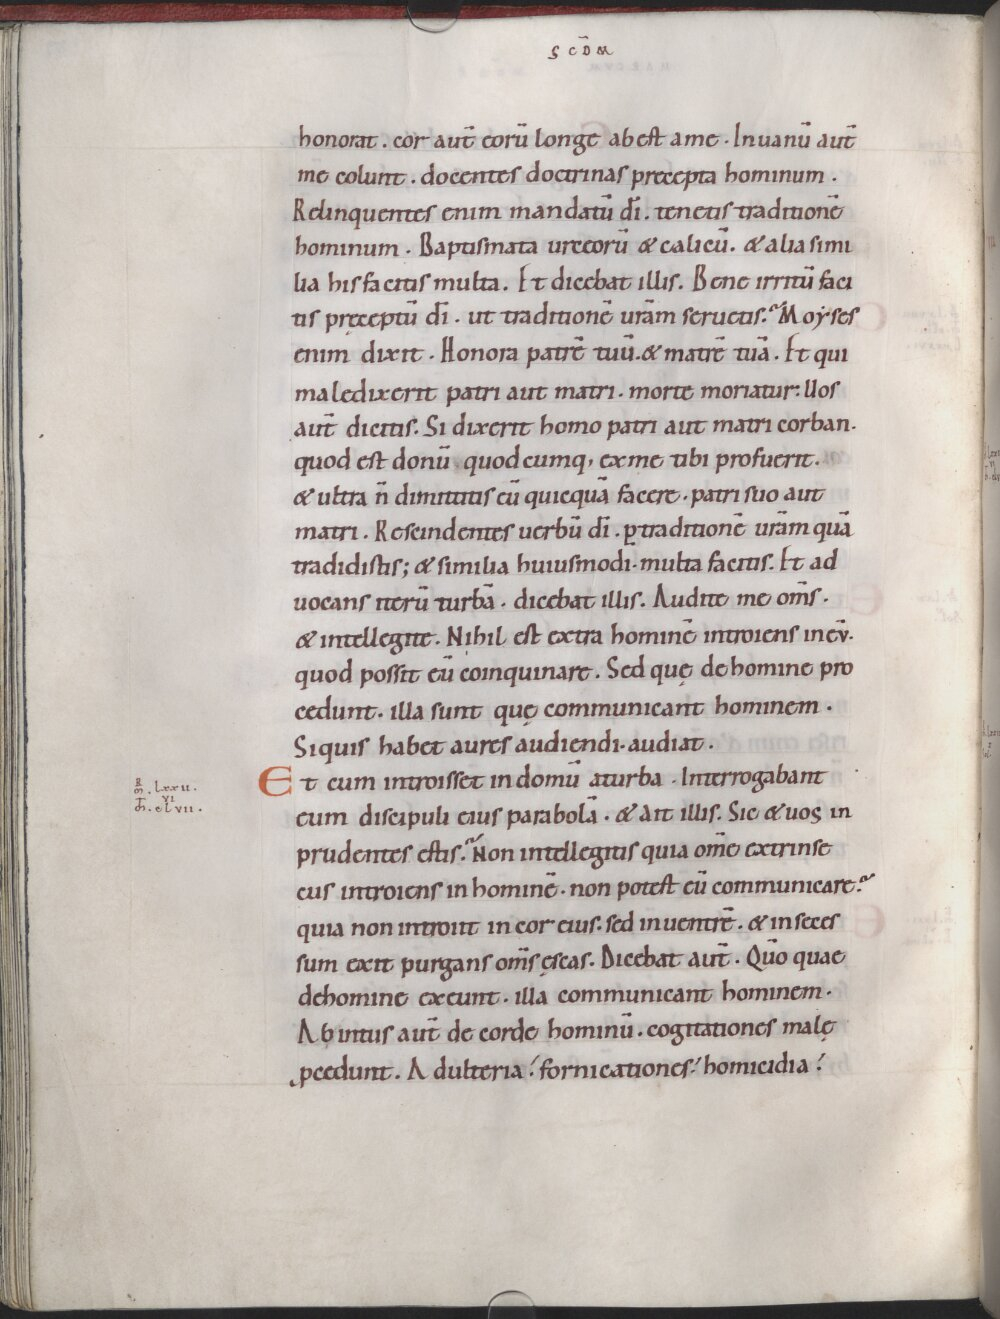 SCD̄M
honorat. cor aut̄ corū longe abest ame. Inuanū aut̄
mē colunt. docentes doctrinas precepta hominum.
Relinquentes enim mandatū dī. tenetis traditionē
hominum. Baptismata urceorū & calicū. & alia simi
lia his facitis multa. Et dicebat illis. Bene irritū faci
tis pręceptū dī. ut traditionē urām seruetis. Moẏses
enim dixit. Honora patrē tuū. & matrē tuā. Et qui
maledixerit patri aut matri. morte moriatur: Uos
aut̄ dicitis. Si dixerit homo patri aut matri corban.
quod est donū quodcumq, ex me tibi profuerit.
& ultra n̄ dimittitis eū quicquā facere. patri suo aut
matri. Rescindentes uerbū dī. ꝑ traditionē urām quā
tradidistis; & similia huiusmodi. multa facitis. Et ad
uocans iterū turbā. dicebat illis. Audite me om̄s.
& intellegite. Nihil est extra hominē introiens in eū.
quod possit eū coinquinare. Sed quę de homine pro
cedunt. illa sunt quę communicant hominem.
Siquis habet aures audiendi. audiat.
Et cum introisset in domū aturba. Interrogabant
eum discipuli eius parabolā. & Ait illis. Sic & uos in
prudentes estis. Non intellegitis quia om̄e extrinse
cus introiens in hominē. non potest eū communicare.
quia non introiit in cor eius. sed in uentrē. & in seces
sum exit purgans om̄s escas. Dicebat aut̄. Qūo quae
de homine exeunt. illa communicant hominem.
Ab intus aut̄ de corde hominū. cogitationes malę
ꝓcedunt. Adulteria. fornicationes. homicidia.
R
M. lxxII.
VI
M̄. clVII.